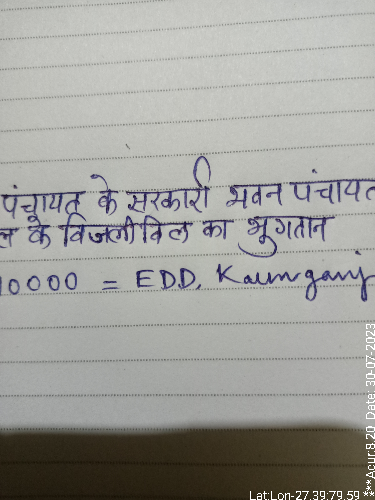 पंचायत के सरकारी भवन पंचायत
ल के बिजली बिल का भुगतान
10000 = EDD, Kaimganj
Lat:Lon-27.39:79.59
***Acur:8.20 Date: 30-07-2023